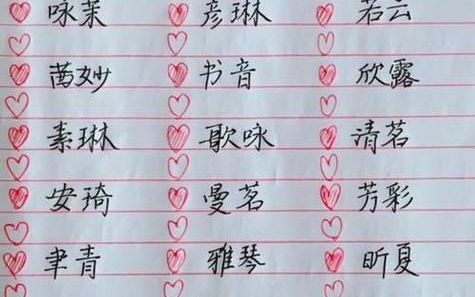 咏茉 彦琳 若云
茜妙 书音 欣露
素琳 歌咏 清茗
安琦 曼茗 芳彩
聿青 雅琴 昕夏